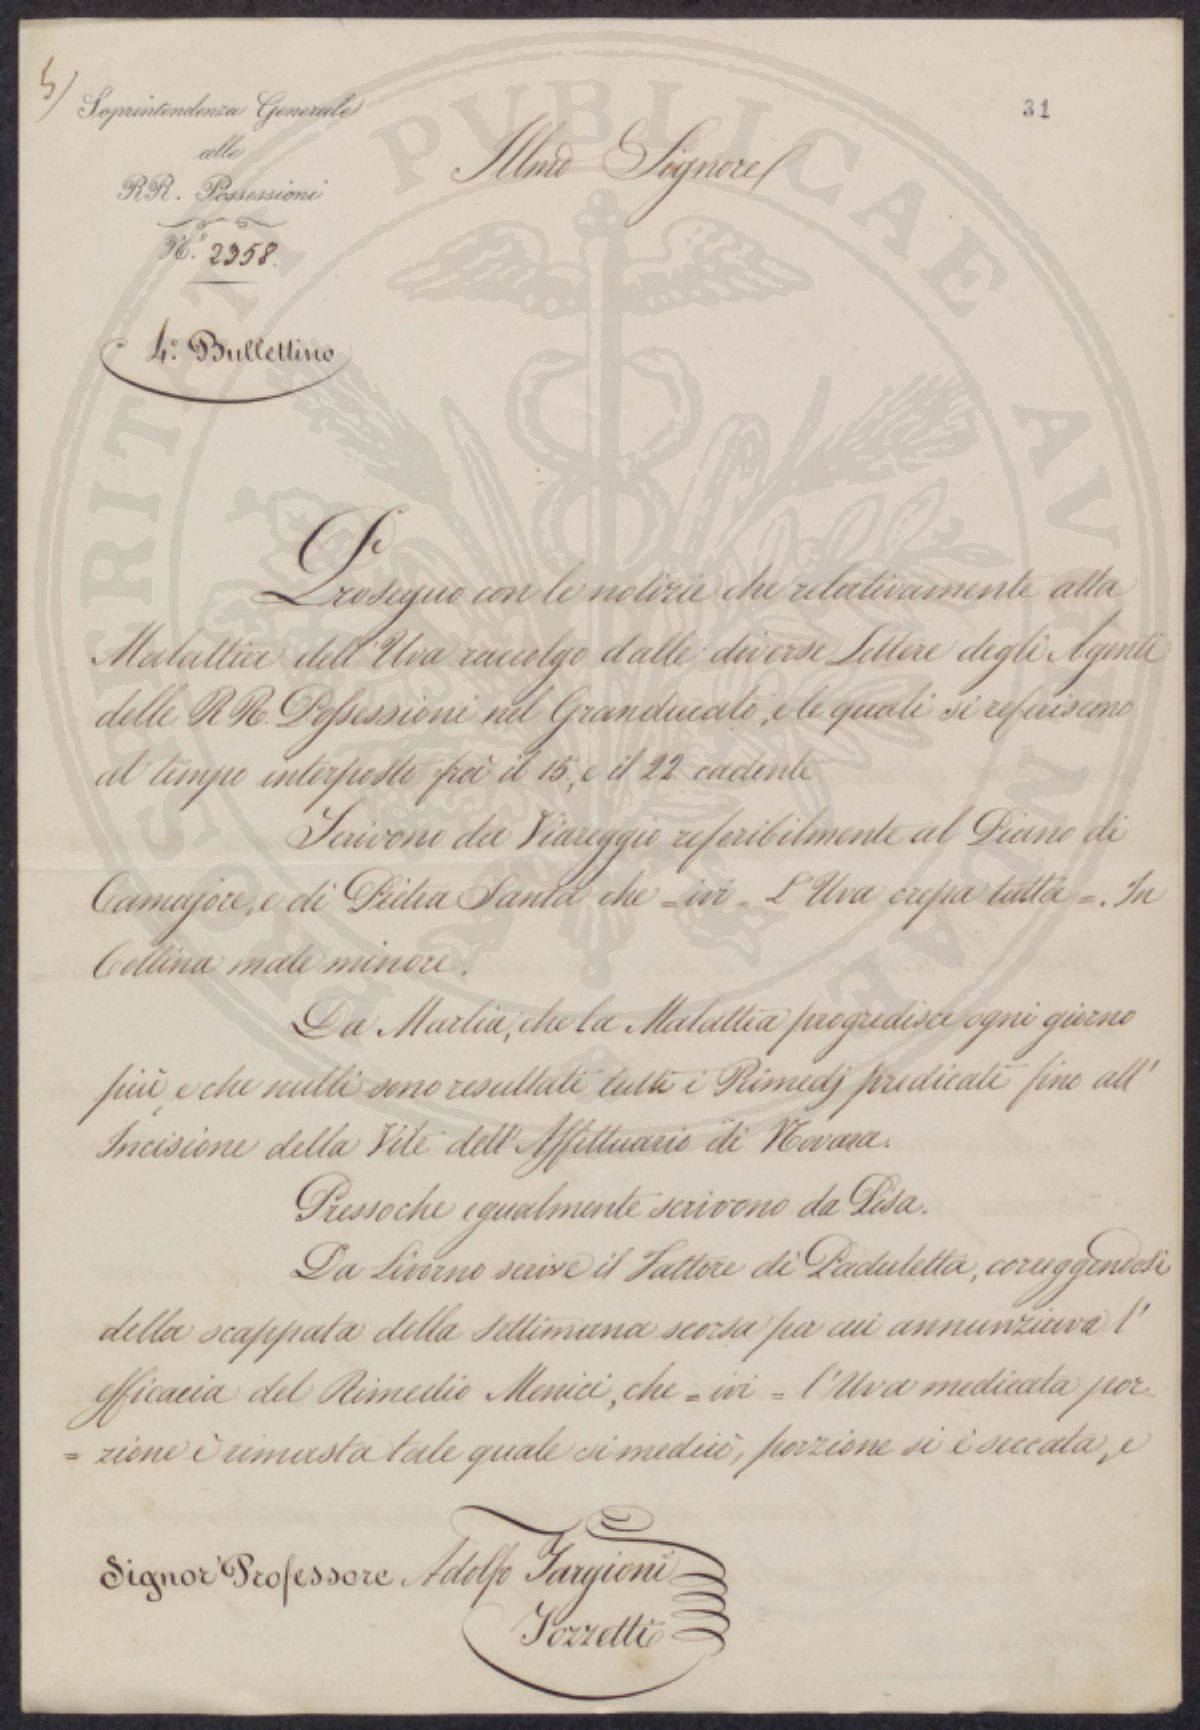 5)
Soprintendenza Generale
alle
RR. Possessioni
N.° 2358.
4.° Bullettino
31
Illmo Signore
Proseguo con le notizie che relativamente alla
Malattia dell'Uva raccolgo dalle diverse Lettere degli Agenti
delle RR. Possessioni nel Granducato, e le quali si referiscono
al tempo interposto fra il 15, e il 22 cadente
Scrivono da Viareggio referibilmente al Piano di
Camajore, e di Pietra Santa che = ivi = L'Uva crepa tutta =. In
Collina male minore.
Da Marlia, che la Malattia progredisce ogni giorno
più, e che nulli sono resultati tutti i Rimedj predicati fino all'
Incisione della Vite dell'Affittuario di Novara.
Pressoche egualmente scrivono da Pisa.
Da Livorno scrive il Fattore di Paduletta, correggendosi
della scappata della settimana scorsa per cui annunziava l'
efficacia del Rimedio Menici, che = ivi = l'Uva medicata por-
= zione è rimasta tale quale si medicò, porzione si è seccata, e
Signor Professore Adolfo Targioni
Tozzetti
PUBLICAE AVGUMAE PROSPERITATI